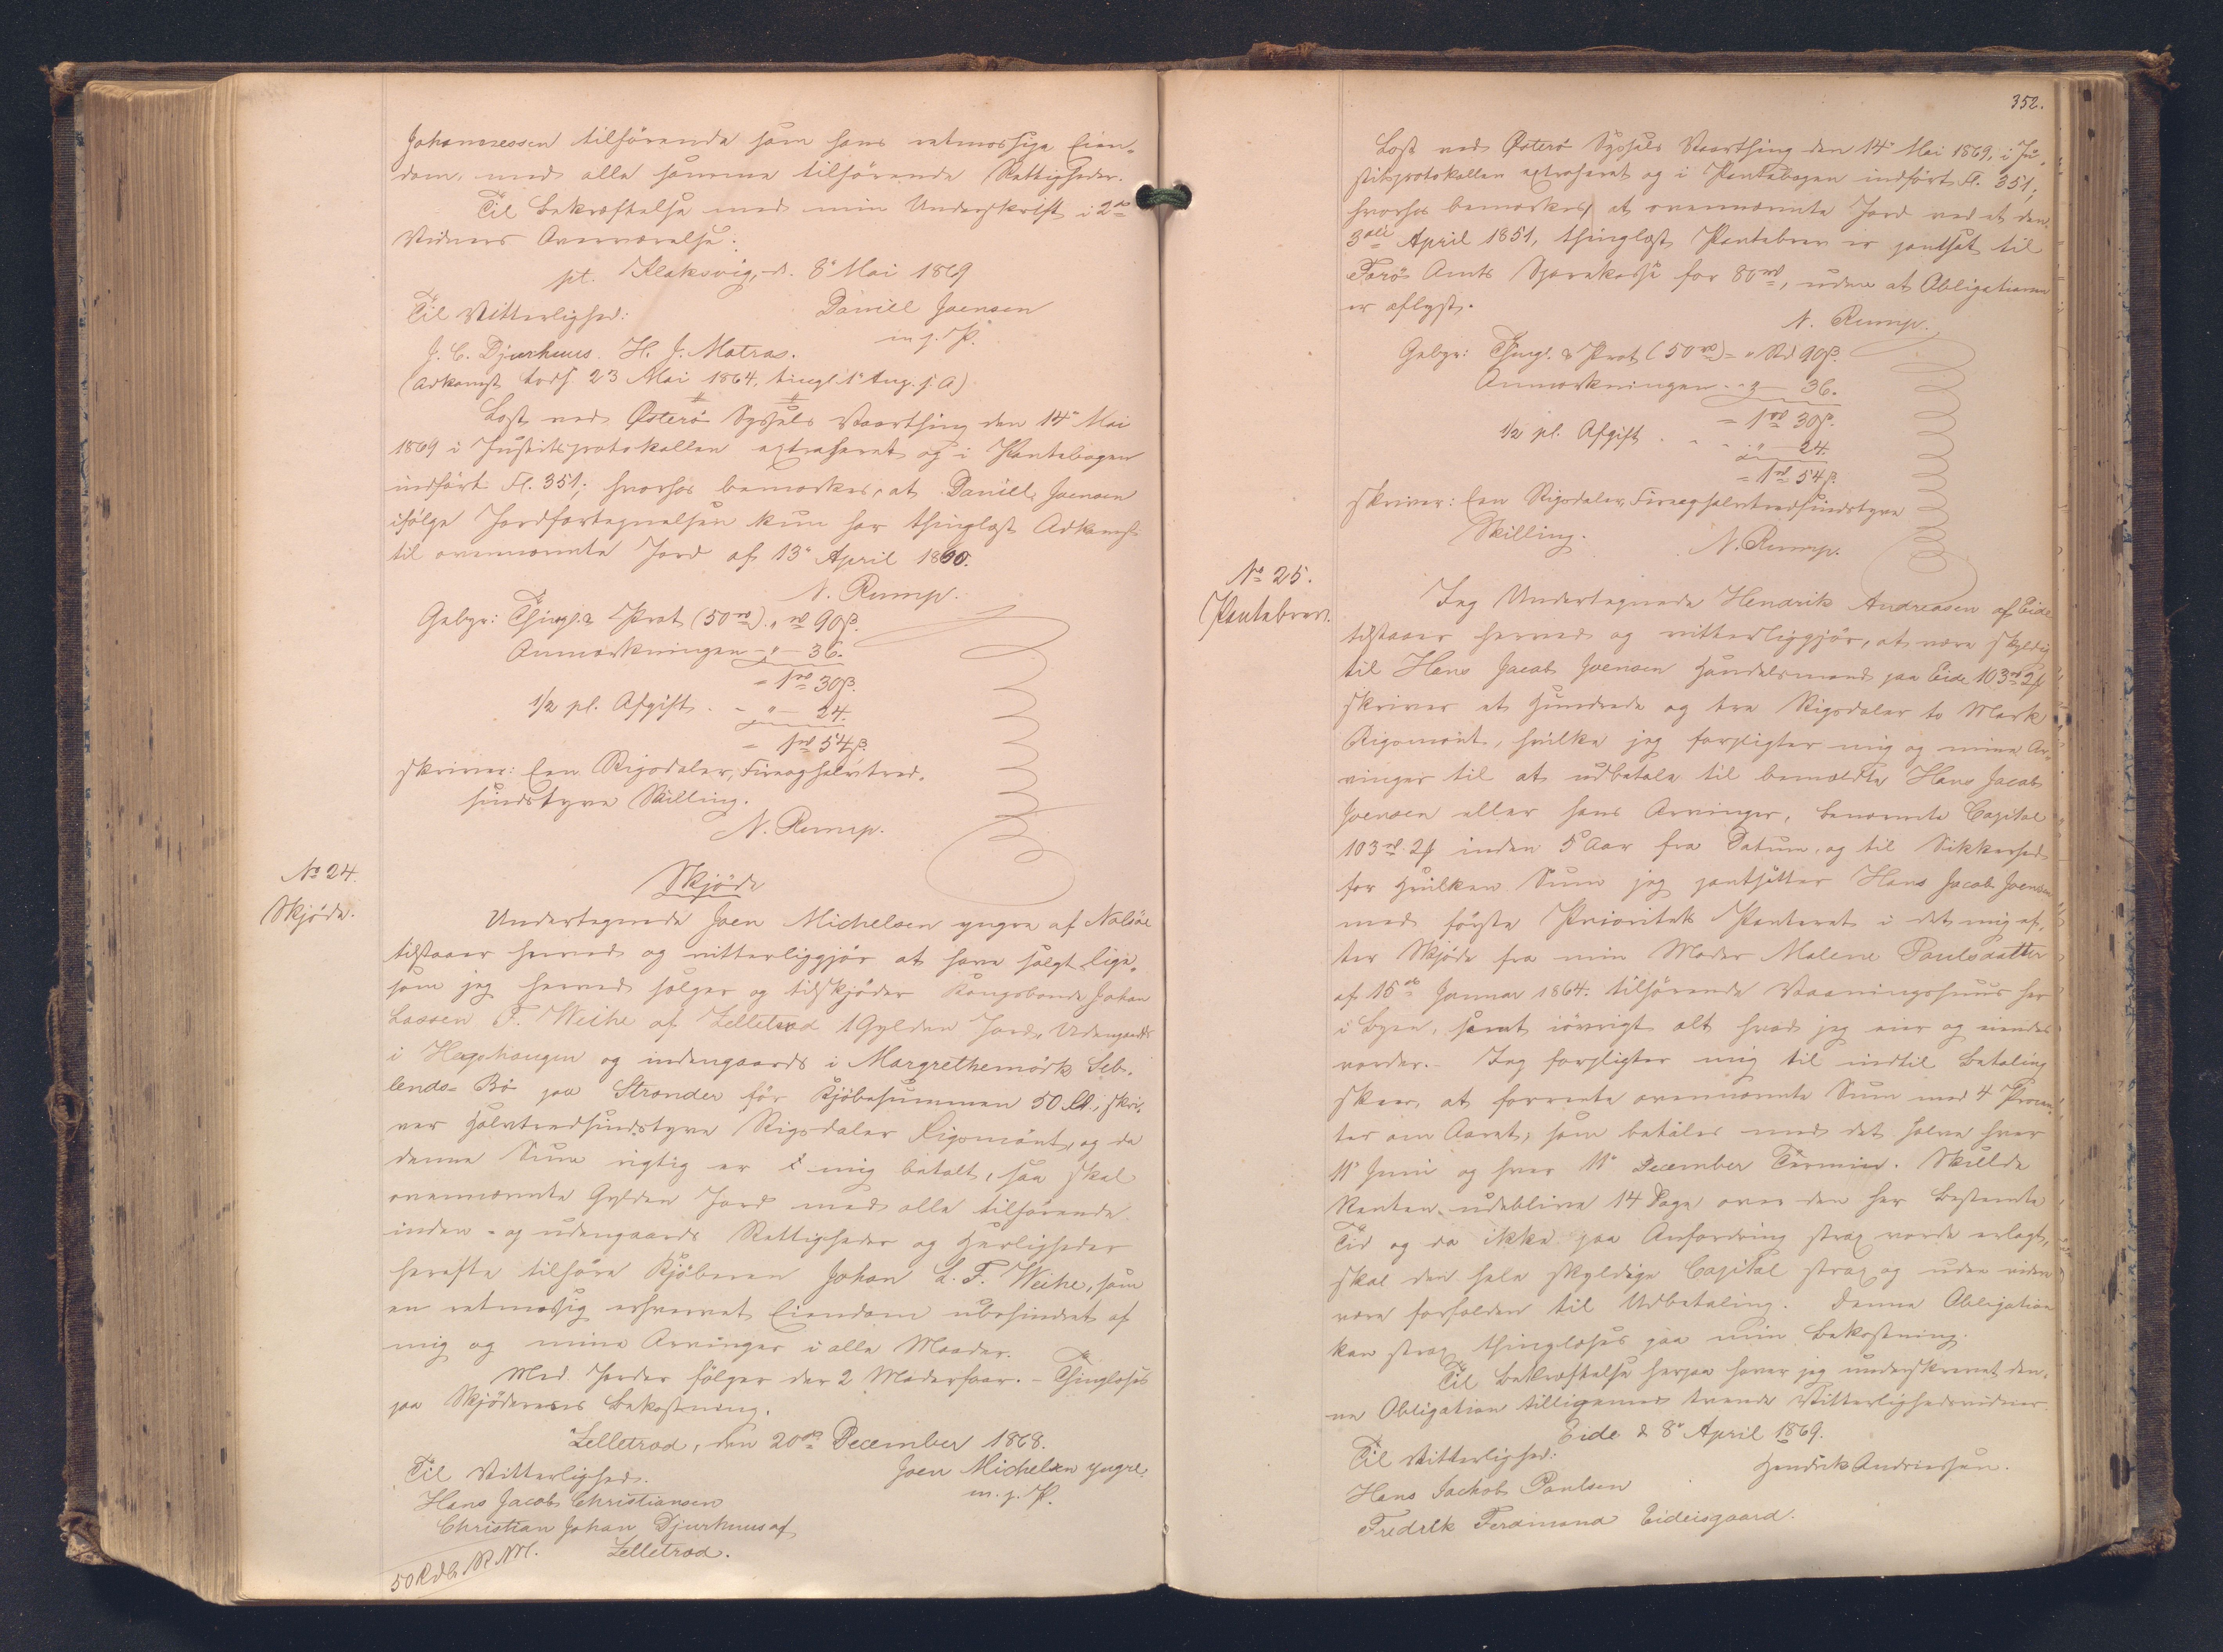 Johannessen tilhörende som hans retmæssige Eien-
dom, med alle samme tilhörende Rettigheder.
Til Bekræftelse med min Underskrift i 2de
Vidners Overværelse.
pt. Klaksvig, d. 8' Mai 1869
Til Vitterlighed: Daniell Joensen
J. C. Djurhuus. H. J. Matras. m. p. P.
(Adkomst Auct. 23 Mai 1864, tingl. 1' Aug. s. A)
Læst ved Österö Syssels Vaarthing den 14' Mai
1869 i Justitsprotokollen extraheret og i Pantebogen
indført Fl. 351; hvorhos bemærkes, at Daniell Joensen
ifølge Jordfortegnelsen kun har thinglæst Adkomst
til ovennævnte Jord af 13' April 1860.
N. Rump.
Gebyr: Thingl. & Prot (50 rd) " rd 90 ß.
Anmærkningen - " - 36.
= 1 rd 30 ß.
1/2 pC. Afgift . - " - 24.
= 1 rd 54 ß.
skriver: Een Rigsdaler, Fireoghalvtred-
sindstyve Skilling.
N. Rump.
No 24.
Skjöde.
Skjöde
Undertegnede Joen Michelsen yngre af Nolsöe
tilstaaer herved og vitterliggjör at have solgt lige-
som jeg herved sælger og tilskjöder Kongsbonde Johan
Lassen F. Weihe af Zelletræd 1 Gylden Jord, Udengaards
i Hagahaugen og indengaards i Margrethemörk Seb-
lends-Bö paa Strander for Kjöbesummen 50 Rd., skri-
ver Halvtredsindstyve Rigsdaler Rigsmönt, og da
denne Sum rigtig er mig betalt, saa skal
ovennævnte Gylden Jord med alle tilhørende
inden- og udengaards Rettigheder og Herligheder
herefter tilhøre Kjöberen Johan L. F. Weihe, som
en retmæssig erhvervet Eiendom ubehindret af
mig og mine Arvinger i alle Maader.
Med Jorden følger der 2 Moderfaar. - Thinglæses
paa Skjöderens Bekostning.
Zelletræd, den 20de December 1868.
Til Vitterlighed. Joen Michelsen yngre.
Hans Jacob Christiansen m. p. P.
Christian Johan Djurhuus af
Zelletræd.
50 Rdl. R. M.
352.
Læst ved Österö Syssels Vaarthing den 14' Mai 1869, i Ju-
stitsprotokollen extraheret og i Pantebogen indført Fl. 351;
hvorhos bemærkes, at ovennævnte Jord ved et den
3die April 1851, thinglæst Pantebrev er pantsat til
Færö Amts Sparekasse for 80 rd, uden at Obligationen
er aflyst.
N. Rump.
Gebyr: Thingl. & Prot (50 rd) = " Rd 90 ß.
Anmærkningen - " - 36.
= 1 rd 30 ß.
1/2 pC. Afgift . - - " 24.
= 1 rd 54 ß.
skriver: Een Rigsdaler, Fireoghalvtredsindstyve
Skilling. N. Rump.
No 25.
Pantebrev.
Jeg Undertegnede Hendrik Andreasen af Eide
tilstaaer herved og vitterliggjör, at være skyldig
til Hans Jacob Joensen Handelsmand paa Eide 103 rd 2 ℳ
skriver et Hundrede og tre Rigsdaler to Mark
Rigsmönt, hvilke jeg forpligter mig og mine Ar-
vinger til at udbetale til bemeldte Hans Jacob
Joensen eller hans Arvinger, benævnte Capital
103 rd 2 ℳ inden 5 Aar fra Datum, og til Sikkerhed
for hvilken Sum jeg pantsætter Hans Jacob Joensen
med første Prioritets Panteret i det mig ef-
ter Skjöde fra min Moder Malene Paulsdatter
af 15de Januar 1864. tilhörende Vaaningshuus her
i Byen, samt iövrigt alt hvad jeg eier og eiendes
vorder. - Jeg forpligter mig til indtil Betaling
skeer, at forrente ovennævnte Sum med 4 Procen-
ter om Aaret, som betales med det halve hver
11' Juni og hver 11' December Termin. Skulde
Renten udeblive 14 Dage over den her bestemte
Tid og da ikke paa Anfordring strax vorde erlagt,
skal den hele skyldige Capital strax og uden videre
være forfalden til Udbetaling. Denne Obligation
kan strax thinglæses paa min Bekostning.
Til Bekræftelse herpaa haver jeg underskrevet den-
ne Obligation tilligemed tvende Vitterlighedsvidner.
Eide d. 8' April 1869.
Til Vitterlighed: Hendrik Andriassen.
Hans Jachob Poulsen
Fredrik Ferdinand Eideisgaard.